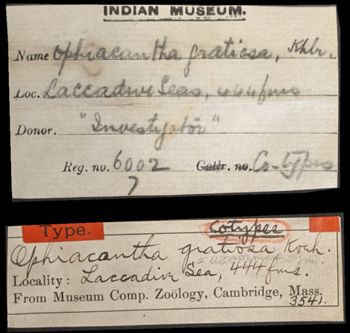 INDIAN MUSEUM.
Name Ophiacantha gratiosa, Khlr.
Loc. Laccadive Seas, 444 fms
Donor. "Investigator"
Reg. no. 6002 Collr. no. Co-types
7
Type.
cotypes
Ophiacantha gratiosa Koeh.
Locality: Laccadive Sea, 444 fms.
From Museum Comp. Zoölogy, Cambridge, Mass.
3541.